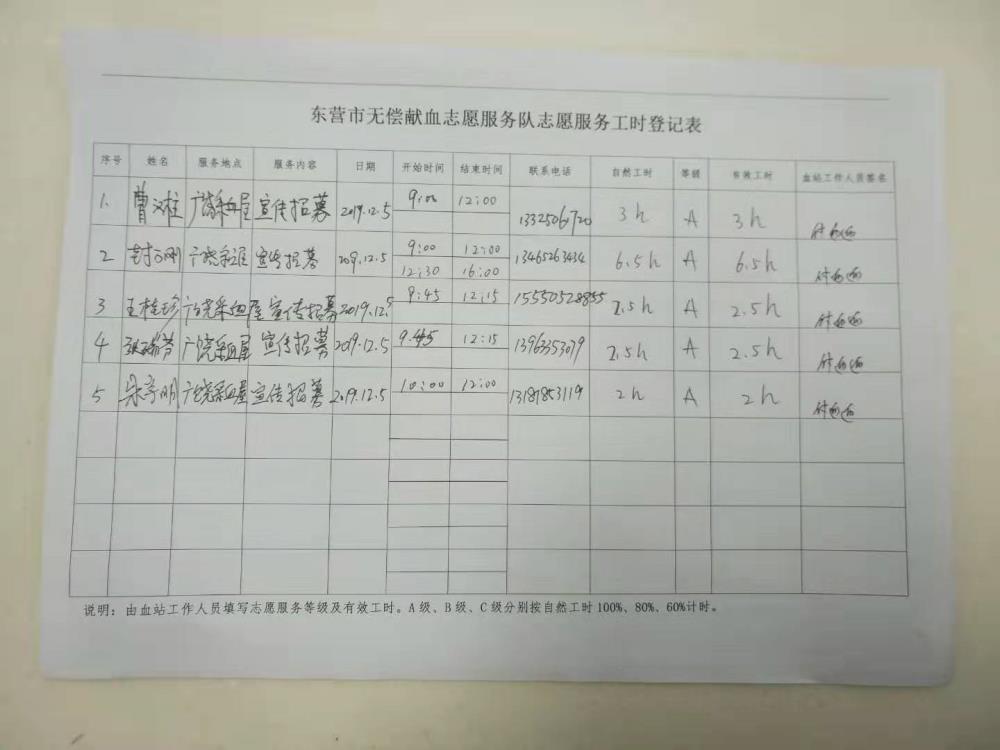 东营市无偿献血志愿服务队志愿服务工时登记表
序号 姓名 服务地点 服务内容 日期 开始时间 结束时间 联系电话 自然工时 等级 有效工时 血站工作人员签名
1. 曹汉柱 广饶采血屋 宣传招募 2019.12.5 9:00 12:00 13325061720 3h A 3h
2 广饶采血屋 宣传招募 2019.12.5 9:00 12:00 13465263434 6.5h A 6.5h
12:30 16:00
3 王桂珍 广饶采血屋 宣传招募 2019.12.5 9:45 12:15 15550528855 2.5h A 2.5h
4 广饶采血屋 宣传招募 2019.12.5 9:45 12:15 13963353079 2.5h A 2.5h
5 广饶采血屋 宣传招募 2019.12.5 10:00 12:00 13181853119 2h A 2h
说明：由血站工作人员填写志愿服务等级及有效工时。A级、B级、C级分别按自然工时100%、80%、60%计时。